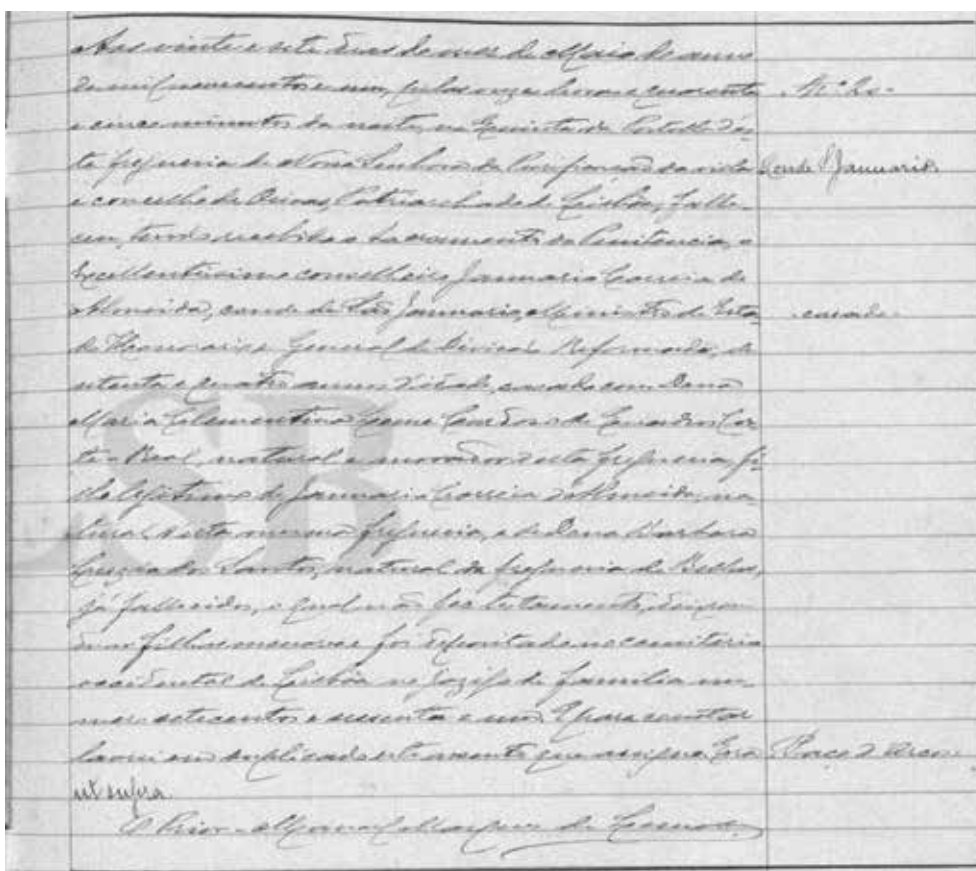 Aos vinte e sete dias do mez de Maio do anno
de mil novecentos e um, pelas onze horas e quarenta
e cinco minutos da noite, na Quinta da d'es-
ta freguezia de Nossa Senhora da Purificação da villa
e concelho de Oeiras, Patriarchado de Lisbôa, falle-
ceu, tendo recebido o Sacramento da Penitencia, o
Excellentissimo conselheiro Januario Correia de
Almeida, conde de São Januario, Ministro de Esta-
do Honorario e General de Divisão Reformado, de
setenta e quatro annos d'idade, casado com Dona
Maria Clementina de Cor-
te-Real, natural e morador desta freguezia, fi-
lho legitimo de Januario Correia de Almeida, na-
tural desta mesma freguezia, e de Dona Barbara
dos Santos, natural da freguezia de Bellas,
já fallecidos, o qual não fez testamento, deixou
filhos menores e foi depositado no cemiterio
occidental de Lisbôa no jazigo de familia nu-
mero setecentos e sessenta e um. E para constar
lavrei em duplicado este assento que assigno. Era
ut supra.
O Prior Manoel Marques de
Nº
Conde S. Januario
casado
Paço d'Arcos
SB